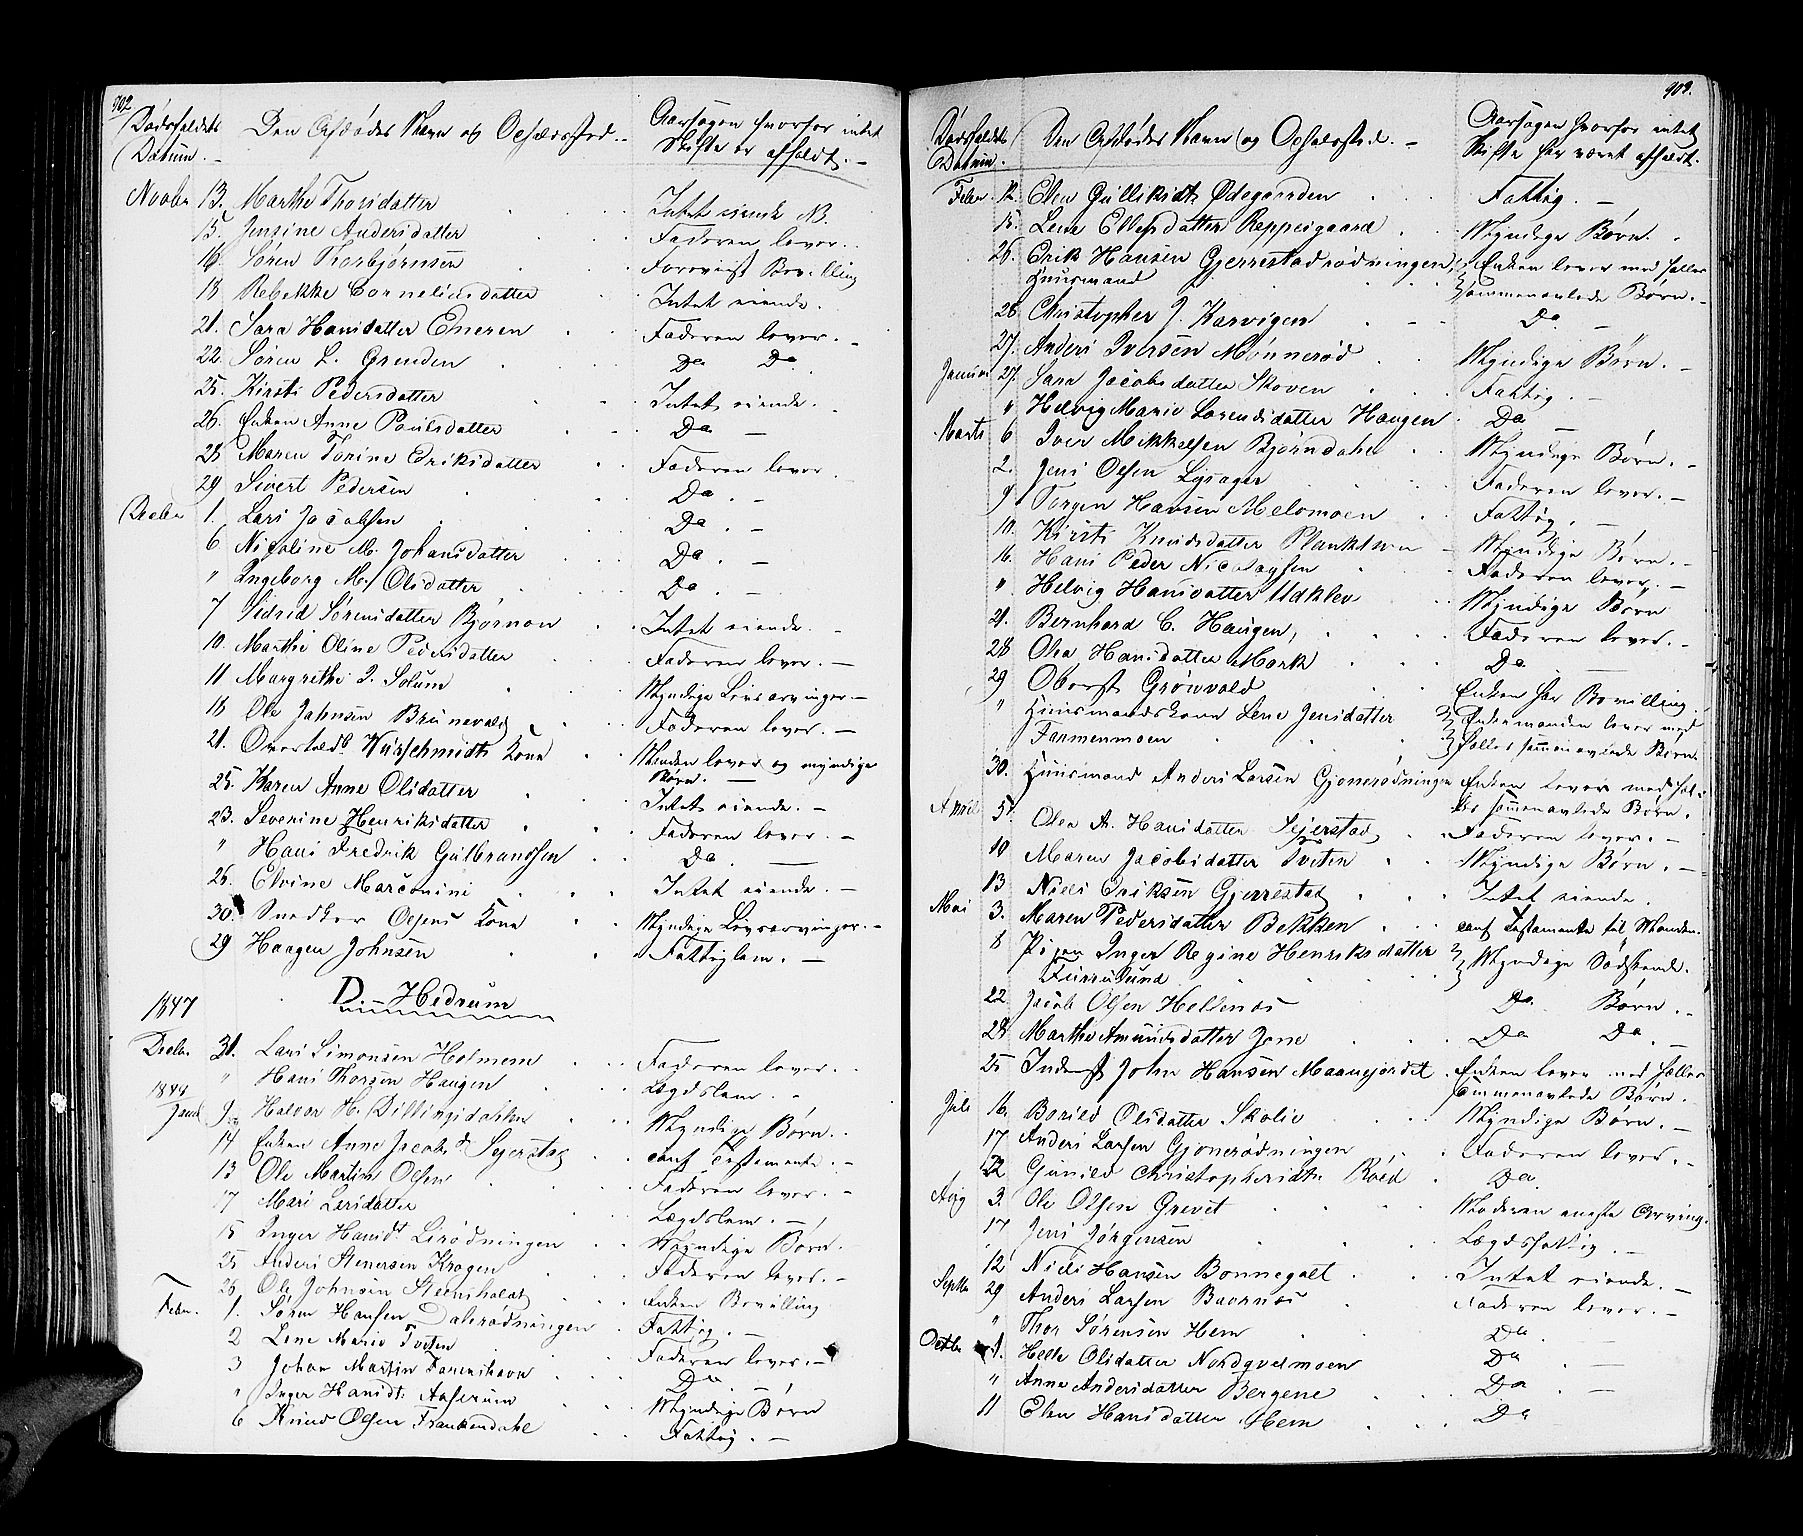 902
Dødsfaldets Den Afdødes Navn og Opholdssted. Aarsagen hvorfor intet
Datum. Skifte er afholdt.
Novbr 13. Marthe Thorsdatter Intet eiende NB.
15. Jensine Andersdatter Faderen lever.
16 Søren Thorbjørnsen Foreviist Bevilling
18 Rebekke Corneliusdatter Intet eiende.
21. Sara Hansdatter Eneren Faderen lever.
22. Søren L. Grenden Do Do
25. Kirsti Pedersdatter Intet eiende.
26. Enken Anne Poulsdatter Do
28 Maren Torine Eriksdatter Faderen lever
29 Sivert Pedersen Do.
Decbr 1. Lars Jacobsen Do.
6 Nicoline M. Johansdatter Do.
" Ingeborg M. Olsdatter Do.
7 Sidrid Sørensdatter Bjørnøen Intet eiende.
10. Marthe Oline Pedersdatter Faderen lever.
11 Margrethe I. Solum Myndige Livsarvinger.
18 Ole Johnsen Brunevald Faderen lever.
21. Overtoldb. Würschmidts Kone Manden lever og myndige
Børn.
25. Karen Anne Olsdatter Intet eiende.
23. Severine Henriksdatter Faderen lever.
" Hans Fredrik Gulbrandsen Do.
26. Elvine Marconini Intet eiende.
30. Snedker Olsens Kone Myndige Livsarvinger.
29 Haagen Johnsen Fattiglem.
1847 D. Hedrum
Decbr. 31. Lars Simonsen Holmen Faderen lever.
" Hans Thorsen Haugen Lægdslem.
1848
Janr 9. Halvor H. Dillingsdalen Myndige Børn.
14 Enken Anne Jacobsd. Sejerstad conf Testamente.
13 Ole Martin Olsen Faderen lever.
17 Mari Larsdatter Lægdslem.
15 Inger Hansdt Lirødningen Myndige Børn.
25 Anders Stenersen Krogen Faderen lever.
26 Ole Johnsen Steensholdt Enken Bevilling
Febr. 1. Søren Hansen Dalerødningen Fattig.
2 Lene Marie Tveten Faderen lever.
3 Johan Martin Farrishavn Do
" Inger Hansdt. Anserum Myndige Børn
6 Knud Olsen Frankendahl Fattig.
903.
Dødsfaldets Den Afdødes Navn og Opholdssted. Aarsagen hvorfor intet
Datum. Skifte har været afholdt.
Febr. 12. Elen Gulliksdt Ødegaarden Fattig.
15. Lene Ellefsdatter Reppesgaard Myndige Børn.
26. Erik Hansen Gjerrestadrødningen, Enken lever med fælles
Huusmand sammenavlede Børn.
26 Christopher J. Karvigen Do
27. Anders Iversen Mønnerød Myndige Børn.
Januar 27. Sara Jacobsdatter Skoven Fattig.
" Helvig Marie Larensdatter Haugen Do
Marts 6 Iver Mikkelsen Bjørndahl Myndige Børn.
2. Jens Olsen Lysager Faderen lever.
9 Torgen Hansen Melomoen Fattig.
10. Kirsti Knudsdatter Plankthun Myndige Børn.
16. Hans Peder Nicolaysen Faderen lever.
" Helvig Hansdatter Udklev Myndige Børn
21. Bernhard C. Haugen, Faderen lever.
28 Olea Hansdatter Mork Do
29 Oberst Grønvold Enken har Bevilling.
" Huusmandskone Lene Jensdatter Enkemanden lever med
Farmenmoen fælles sammenavlede Børn.
30. Huusmand Anders Larsen Gjonerødningen Enken lever med fæl-
les sammenavlede Børn.
April 5. Olea A. Hansdatter Sejerstad Faderen lever.
10 Maren Jacobsdatter Tveten Myndige Børn.
13 Niels Eriksen Gjerrestad Intet eiende.
Mai 3. Maren Pedersdatter Bekken conf Testamente til Manden.
8 Pigen Inger Regine Henriksdatter Myndige Sødskende.
Fuurulund
22. Jacob Olsen Hellenæs Do Børn.
28 Marthe Amundsdatter Jone Do Do.
25 Inderst John Hansen Maanejordet Enken lever med fælles
sammenavlede Børn.
Juli 16. Borild Olsdatter Skolie Myndige Børn.
17 Anders Larsen Gjonerødningen Faderen lever.
22 Gunild Christophersdtr Røed Do.
Aug 3. Ole Olsen Grevet Moderen eneste Arving.
17 Jens Jørgensen Lægdsfattig.
12 Niels Hansen Bonnegolt Intet eiende.
Septbr 29 Anders Larsen Baernæs Faderen lever.
" Thor Sørensen Hem Do.
Octbr 1. Helle Olsdatter Nordqvelmoen Do.
" Anne Andersdatter Bergene Do.
11 Elen Hansdatter Hem Do